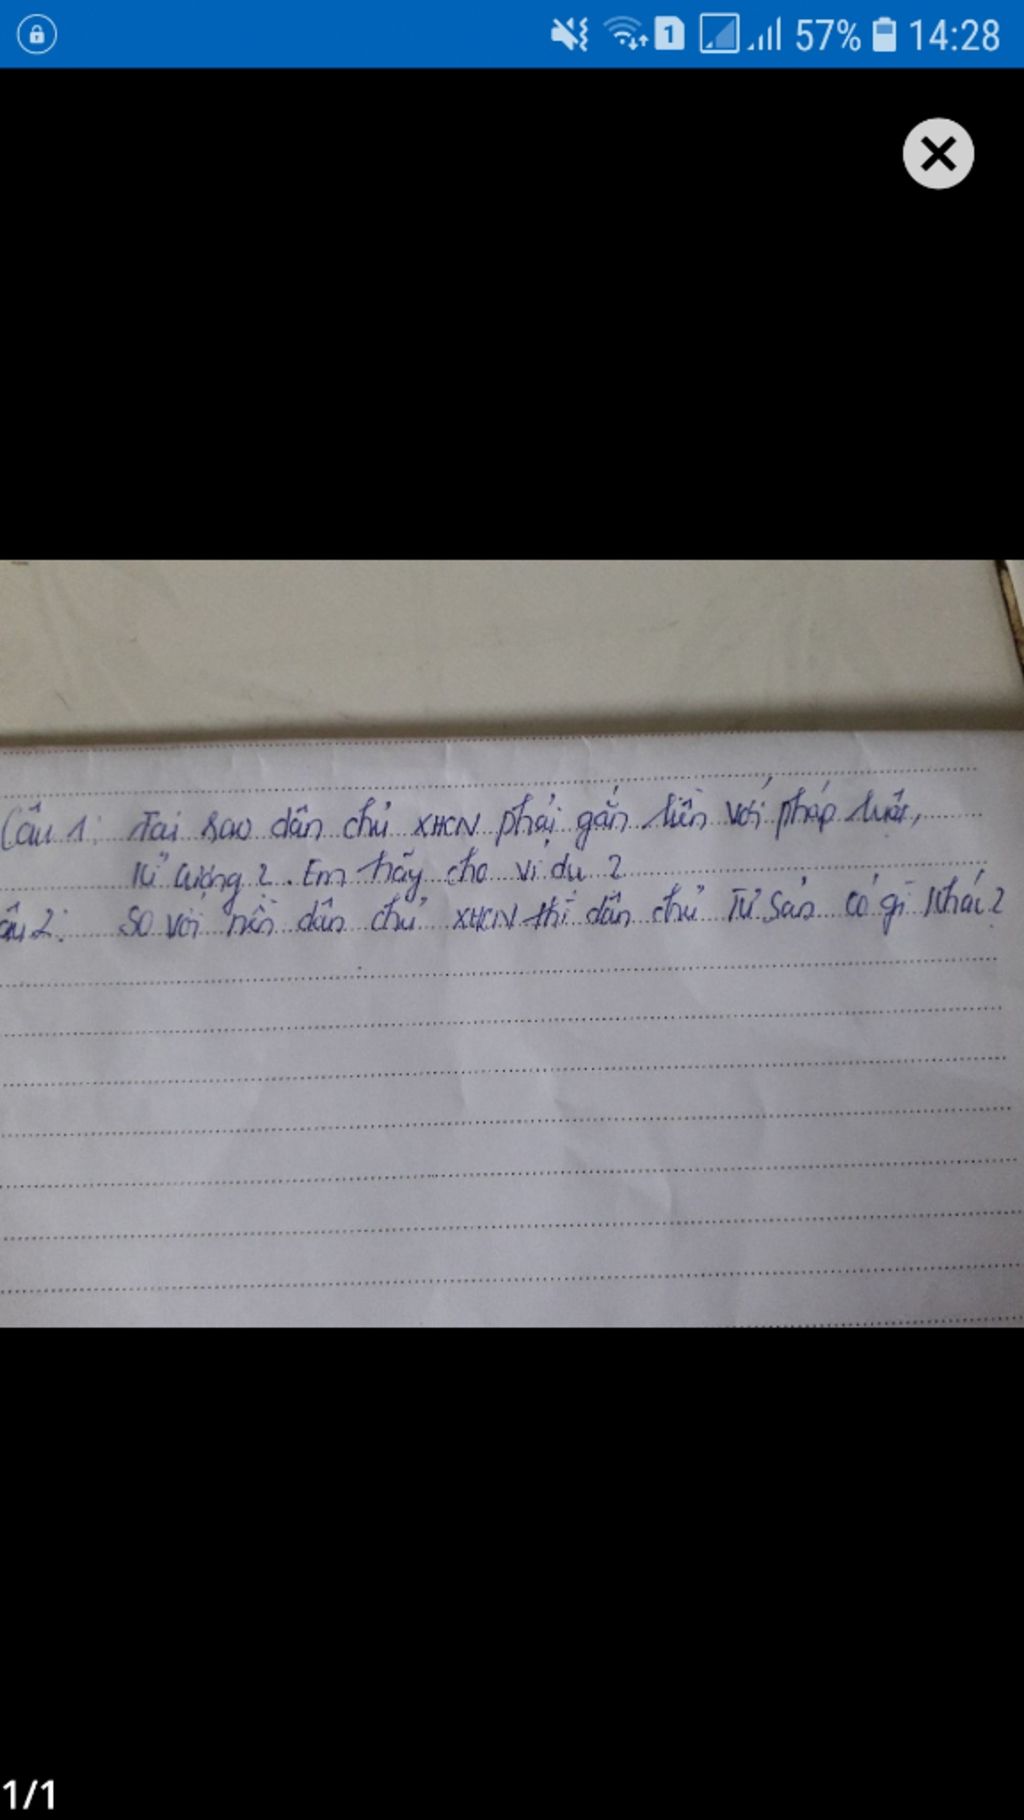 1 57% 14:28
Câu 1: Tại sao dân chủ XHCN phải gắn liền với pháp luật,
kỉ cương ? . Em hãy cho ví dụ ?
âu 2: So với nền dân chủ XHCN thì dân chủ Tư Sản có gì khác ?
1/1